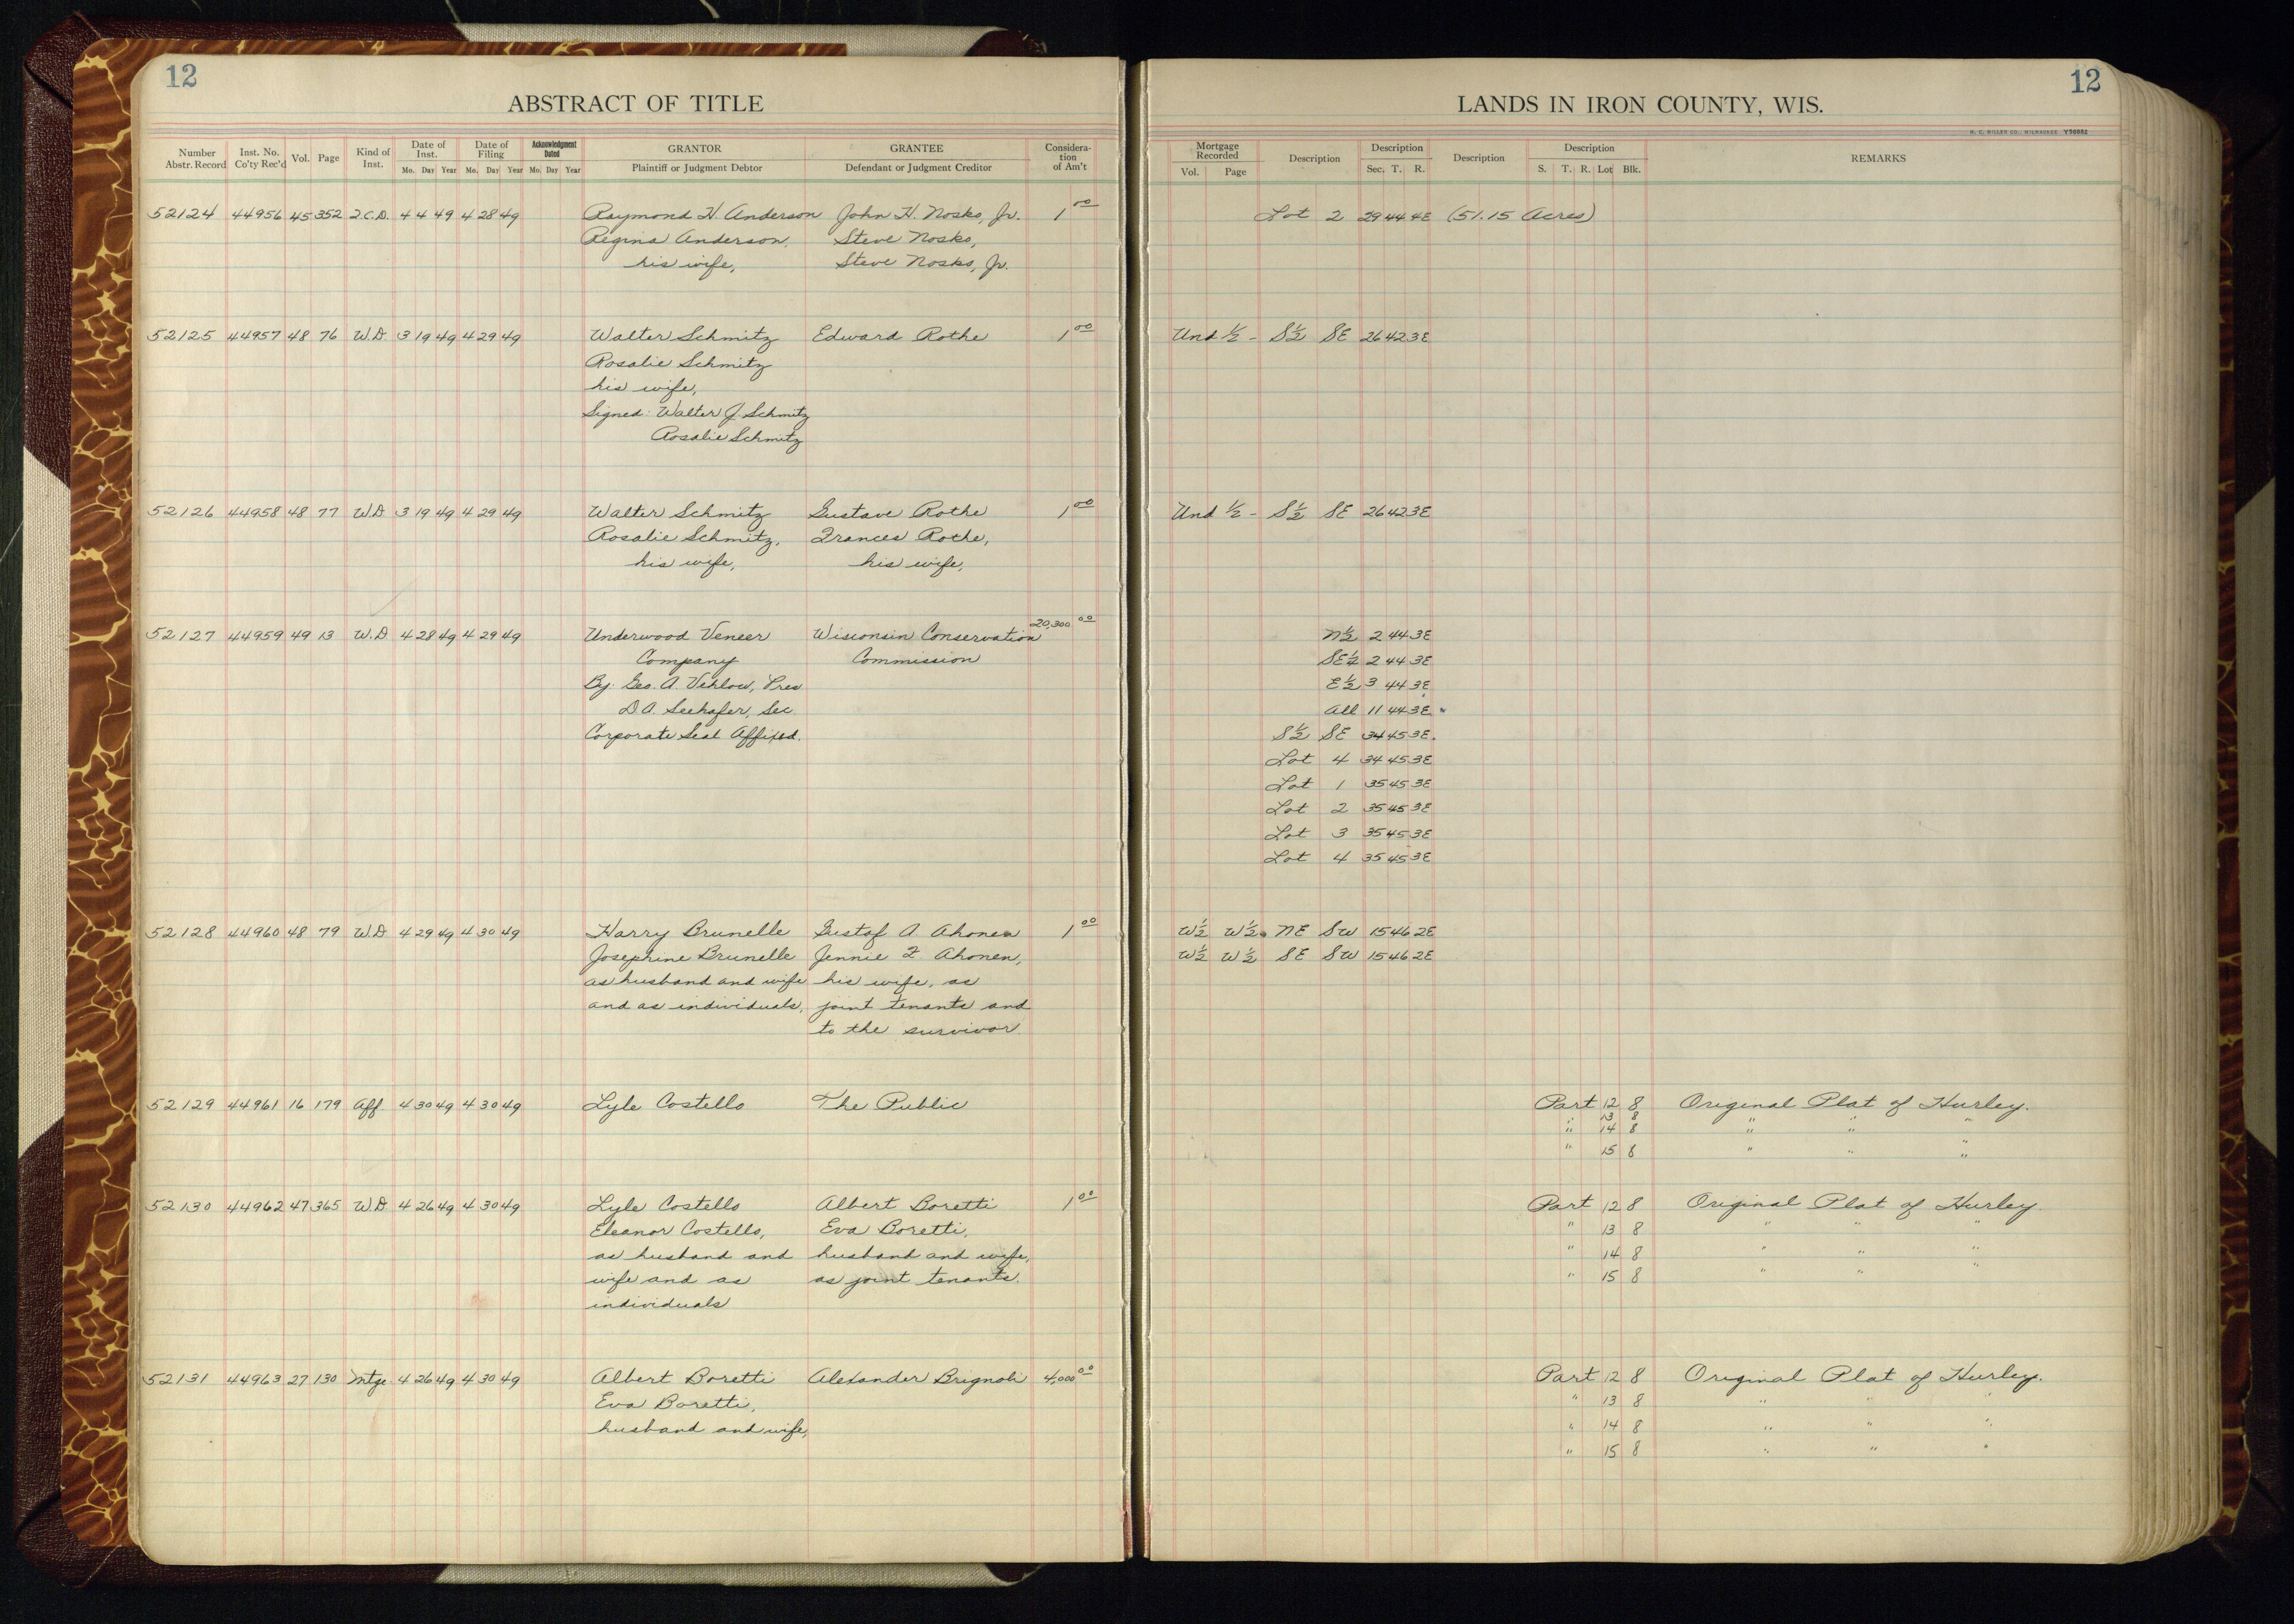 12
ABSTRACT OF TITLE
Number Abstr. Record Inst. No. Co'ty Rec'd Vol. Page Kind of Inst. Date of Inst. Mo. Day Year Date of Filing Mo. Day Year Acknowledgment Dated Mo. Day Year GRANTOR Plaintiff or Judgment Debtor GRANTEE Defendant or Judgment Creditor Considera-tion of Am't
52124 44956 45 352 2.C.D. 4 4 49 4 28 49 Raymond H. Anderson John H. Nosko, Jr. 1 00
Regina Anderson, Steve Nosko,
his wife, Steve Nosko, Jr.
52125 44957 48 76 W.D. 3 19 49 4 29 49 Walter Schmitz Edward Rothe 1 00
Rosalie Schmitz
his wife,
Signed: Walter J. Schmitz
Rosalie Schmitz
52126 44958 48 77 W.D 3 19 49 4 29 49 Walter Schmitz Gustave Rothe 1 00
Rosalie Schmitz, Frances Rothe,
his wife, his wife,
52127 44959 49 13 W.D 4 28 49 4 29 49 Underwood Veneer Wisconsin Conservation 20,300 00
Company Commission
By: Geo. A. Vehlow, Pres
D.A. Seehafer, Sec.
Corporate Seal Affixed.
52128 44960 48 79 W.D 4 29 49 4 30 49 Harry Brunelle Gustof A Ahonen 1 00
Josephine Brunelle Jennie F Ahonen,
as husband and wife his wife, as
and as individuals, joint tenants and
to the survivor.
52129 44961 16 179 Aff. 4 30 49 4 30 49 Lyle Costello The Public
52130 44962 47 365 W.D. 4 26 49 4 30 49 Lyle Costello Albert Boretti 1 00
Eleanor Costello, Eva Boretti,
as husband and husband and wife,
wife and as as joint tenants.
individuals
52131 44963 27 130 Mtge 4 26 49 4 30 49 Albert Boretti Alexander Brignoli 4,000 00
Eva Boretti,
husband and wife,
12
LANDS IN IRON COUNTY, WIS.
H. C. MILLER CO., MILWAUKEE
Mortgage Recorded Vol. Page Description Description Sec. T. R. Description Description S. T. R. Lot Blk. REMARKS
Lot 2 29 44 4E (51.15 Acres)
Und ½ - S½ SE 26 42 3E
Und ½ - S½ SE 26 42 3E
N½ 2 44 3E
SE¼ 2 44 3E
E½ 3 44 3E
All 11 44 3E
S½ SE 34 45 3E.
Lot 4 34 45 3E
Lot 1 35 45 3E
Lot 2 35 45 3E
Lot 3 35 45 3E
Lot 4 35 45 3E
W½ W½ NE SW 15 46 2E
W½ W½ SE SW 15 46 2E
Part 12 8 Original Plat of Hurley.
" 13 8 " " "
" 14 8 " " "
" 15 8 " " "
Part 12 8 Original Plat of Hurley.
" 13 8 " " "
" 14 8 " " "
" 15 8 " " "
Part 12 8 Original Plat of Hurley.
" 13 8 " " "
" 14 8 " " "
" 15 8 " " "